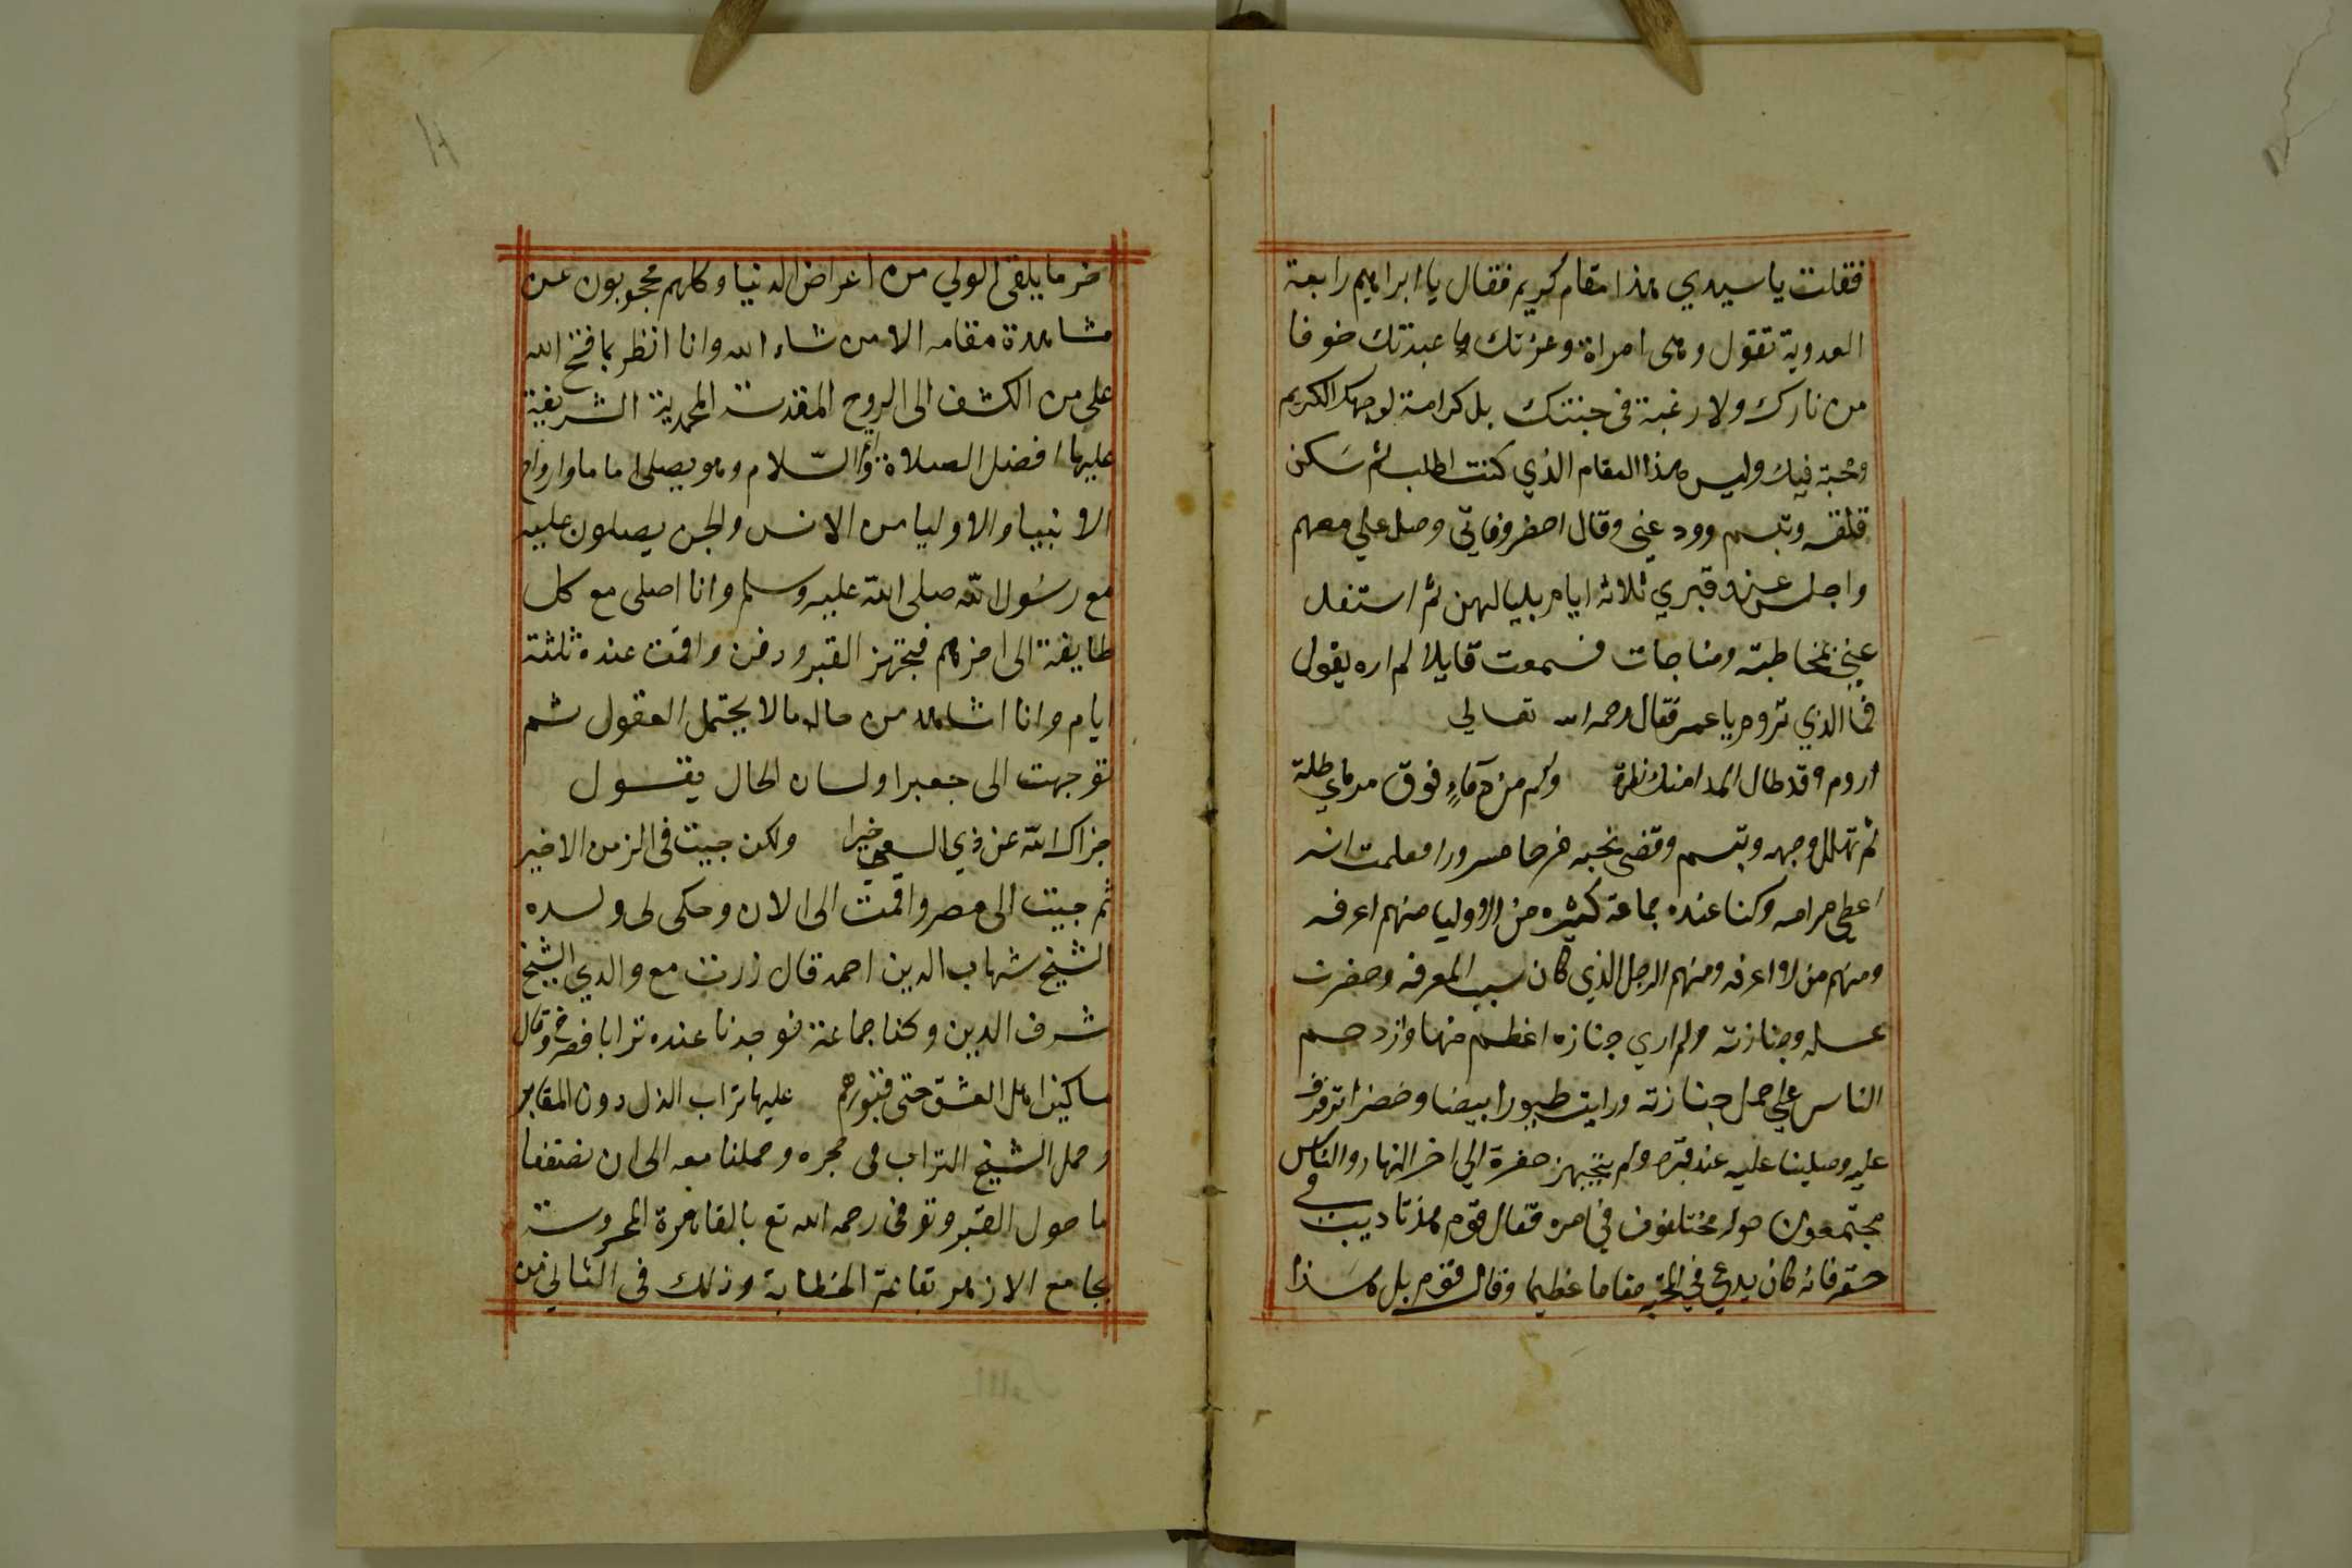 فقلت يا سيدي هذا مقام كريم فقال يا ابراهيم رابعة
العدوية تقول وهى امراة وعزتك ما عبدتك خوفا
من نارك ولا رغبة فى جنتك بل كرامة لوجهك الكريم
ومحبة فيك وليس هذا المقام الذي كنت اطلب ثم سكن
قلقه وتبسم وودعني وقال احضر وفاتي وصل علي معهم
واجلس عند قبري ثلاثه ايام بلياليهن ثم استغل
عني بمخاطبة ومناجات فسمعت قايلا لم اره يقول
فما الذي تروم يا عمر فقال رحمه الله تعالي
اروم وقد طال المدا منك نظرة وكم من دماء فوق مرماي طلة
ثم تهلل وجهه وتبسم وقضى نحبه فرحا مسرورا فعلمت انه
اعطى مرامه وكنا عنده جماعة كثيره من الاوليا منهم اعرفه
ومنهم من لا اعرفه ومنهم الرجل الذي كان سبب المعرفه وحضرت
غسله وجنازته ولم اري جنازه اعظم منها وازدحم
الناس علي حمل جنازته ورايت طيورا بيضا وخضرا ترفرف
عليه وصلينا عليه عند قبره ولم يتجهز حفرة الي اخر النهار والناس
مجتمعون حوله مختلفون في امره فقال قوم هذا تاديب في
حقه فانه كان يدعي في المحبة مقاما عظيما وقال قوم بل هذا
اخر ما يلقى الولي من اعراض الدنيا وكلهم محجوبون عن
مشاهدة مقامه الا من شاء الله وانا انظر بما فتح الله
على من الكشف الى الروح المقدسة المحمدية الشريفة
عليها افضل الصلاة والسّلام وهو يصلى اماما وارواح
الانبيا والاوليا من الانس والجن يصلون عليه
مع رسول الله صلى الله عليه وسلم وانا اصلى مع كل
طايفة الى اخرهم فتجهز القبر ودفن واقمت عنده ثلثة
ايام وانا اشاهد من حاله ما لا يحتمل العقول ثم
توجهت الى جعبرا ولسان الحال يقول
جزاك الله عن ذي السعي خيرا ولكن جيت فى الزمن الاخير
ثم جيت الى مصر واقمت الى الان وحكى لى ولده
الشيخ شهاب الدين احمد قال زرت مع والدي الشيخ
شرف الدين وكنا جماعة فوجدنا عنده ترابا فصرخ وقال
مساكين اهل العشق حتى قبورهم عليها تراب الذل دون المقابر
وحمل الشيخ التراب فى حجره وحملنا معه الى ان نضفنا
ما حول القبر وتوفى رحمه الله تع بالقاهرة المحروسة
بجامع الازهر بقاعة الخطابة وذلك فى الثاني من